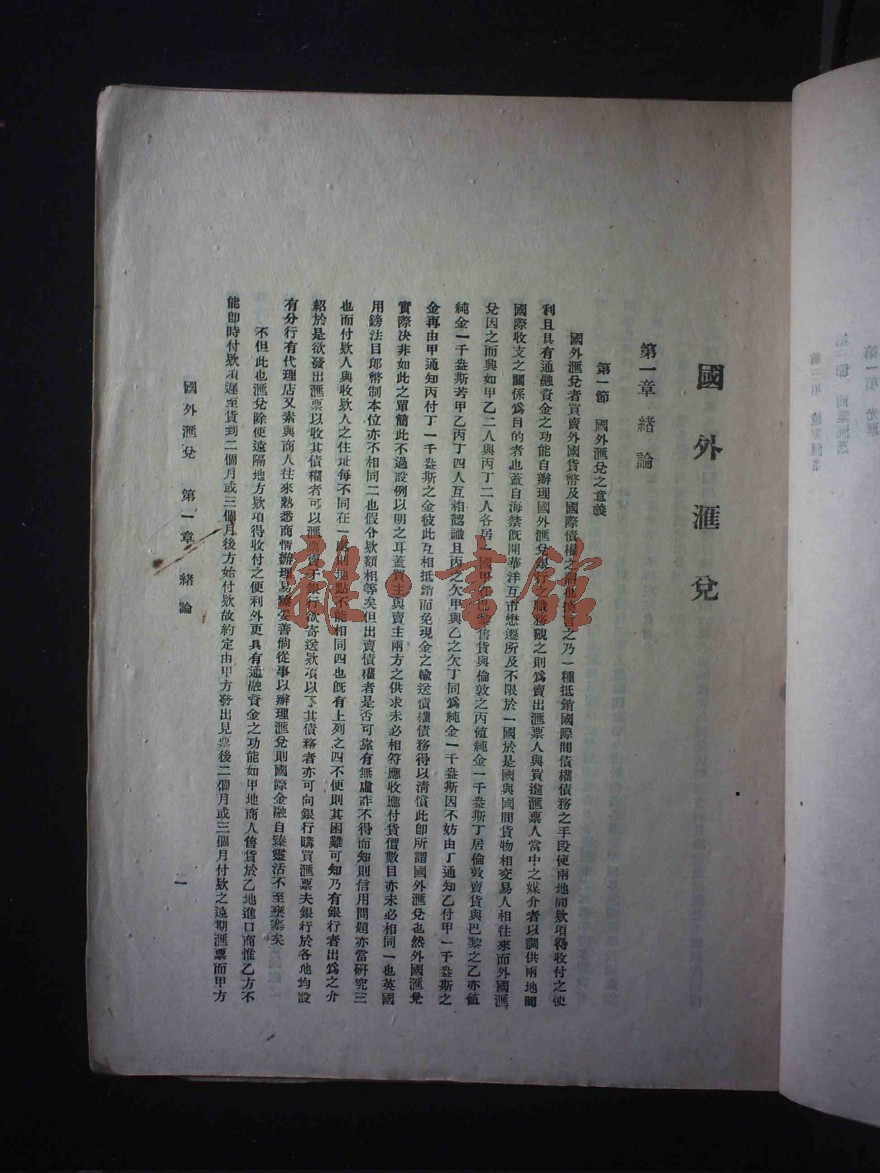 國外滙兌
第一章 緒論
第一節 國外滙兌之意義
國外滙兌者買賣外國貨幣及國際債權之謂也換言之乃一種抵銷國際間債權債務之手段使兩地間欵項得收付之便
利且具有通融資金之功能自辦理國外滙兌銀行之職務觀之則爲賣出滙票人與買進滙票人當中之媒介者以調供兩地間
國際收支之關係爲目的者也蓋自海禁旣開華洋互市懋遷所及不限於一國於是國與國間貨物相交易人相往來而外國滙
兌因之而興如甲乙二人與丙丁二人各居一國甲在巴黎售貨與倫敦之丙值純金一千盎斯丁居倫敦賣貨與巴黎之乙亦值
純金一千盎斯若甲乙丙丁四人互相認識且丙之欠甲與乙之欠丁同爲純金一千盎斯因不妨由丁通知乙付甲一千盎斯之
金再由甲通知丙付丁一千盎斯之金彼此互相抵銷而免現金之輸送債權債務得以清償此即所謂國外滙兌也然外國滙兌
實際决非如此之單簡此不過設例以明之耳蓋買主與賣主兩方之供求未必相符應收應付貨價數目亦未必相同一也英國
用鎊法目郎幣制本位亦不相同二也假令欵額相等矣但出賣債權者是否可靠有無虛詐不得而知則信用問題亦當研究三
也而付欵人與收欵人之住址每不同在一處則地點不能相同四也旣有上列之四不便則其困難可知乃有銀行者出爲之介
紹於是欲發出滙票以收其債權者可以滙票賣于銀行欲寄送欵項以了其債務者亦可向銀行購買滙票夫銀行於各地均設
有分行有代理店又素與商人往來熟悉商情辦理易臻妥善倘從事以辦理滙兌則國際金融自臻靈活不至壅塞矣
不但此也滙兌除便遠隔地方欵項得收付之便利外更具有通融資金之功能如甲地商人售貨於乙地進口商惟乙方不
能即時付欵須遲至貨到二個月或三個月後方始付欵故約定由甲方發出見票後二個月或三個月付欵之遠期滙票而甲方
國外滙兌 第一章 緒論
一
龍·書館
第一項 光票